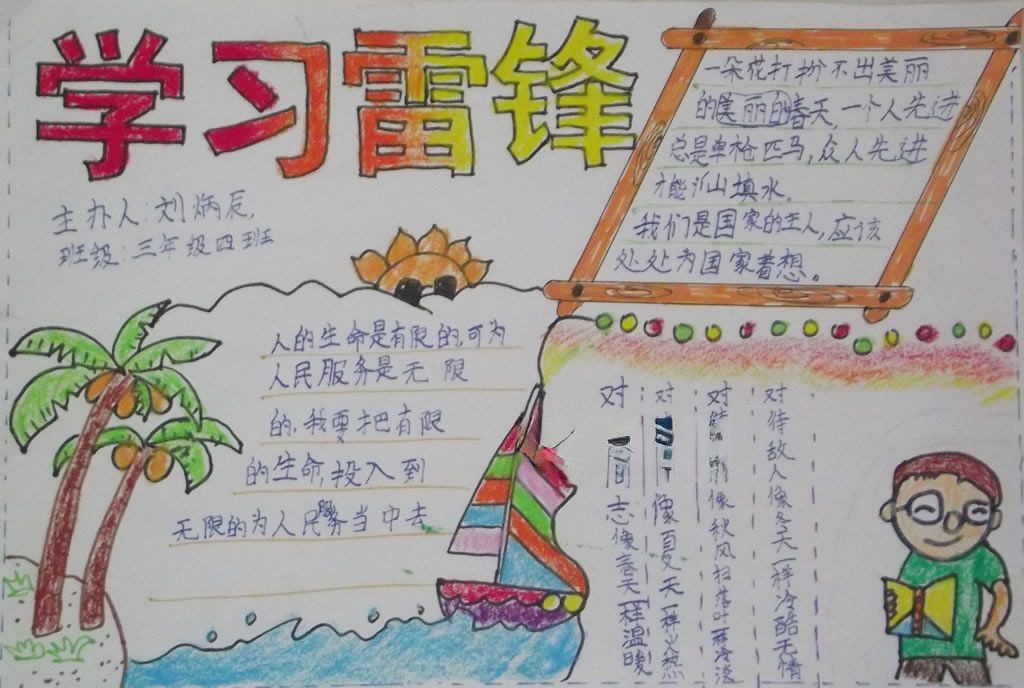 学习雷锋
主办人:刘炳辰,
班级:三年级四班
一朵花打扮不出美丽
的美丽的春天,一个人先进
总是单枪匹马,众人先进
才能山填水。
我们是国家的主人,应该
处处为国家着想。
人的生命是有限的,可为
人民服务是无限
的,我要把有限
的生命,投入到
无限的为人民服务当中去
对同志像春天一样温暖
对像夏天一样火热
对待像秋风扫落叶一样冷淡
对待敌人像冬天一样冷酷无情